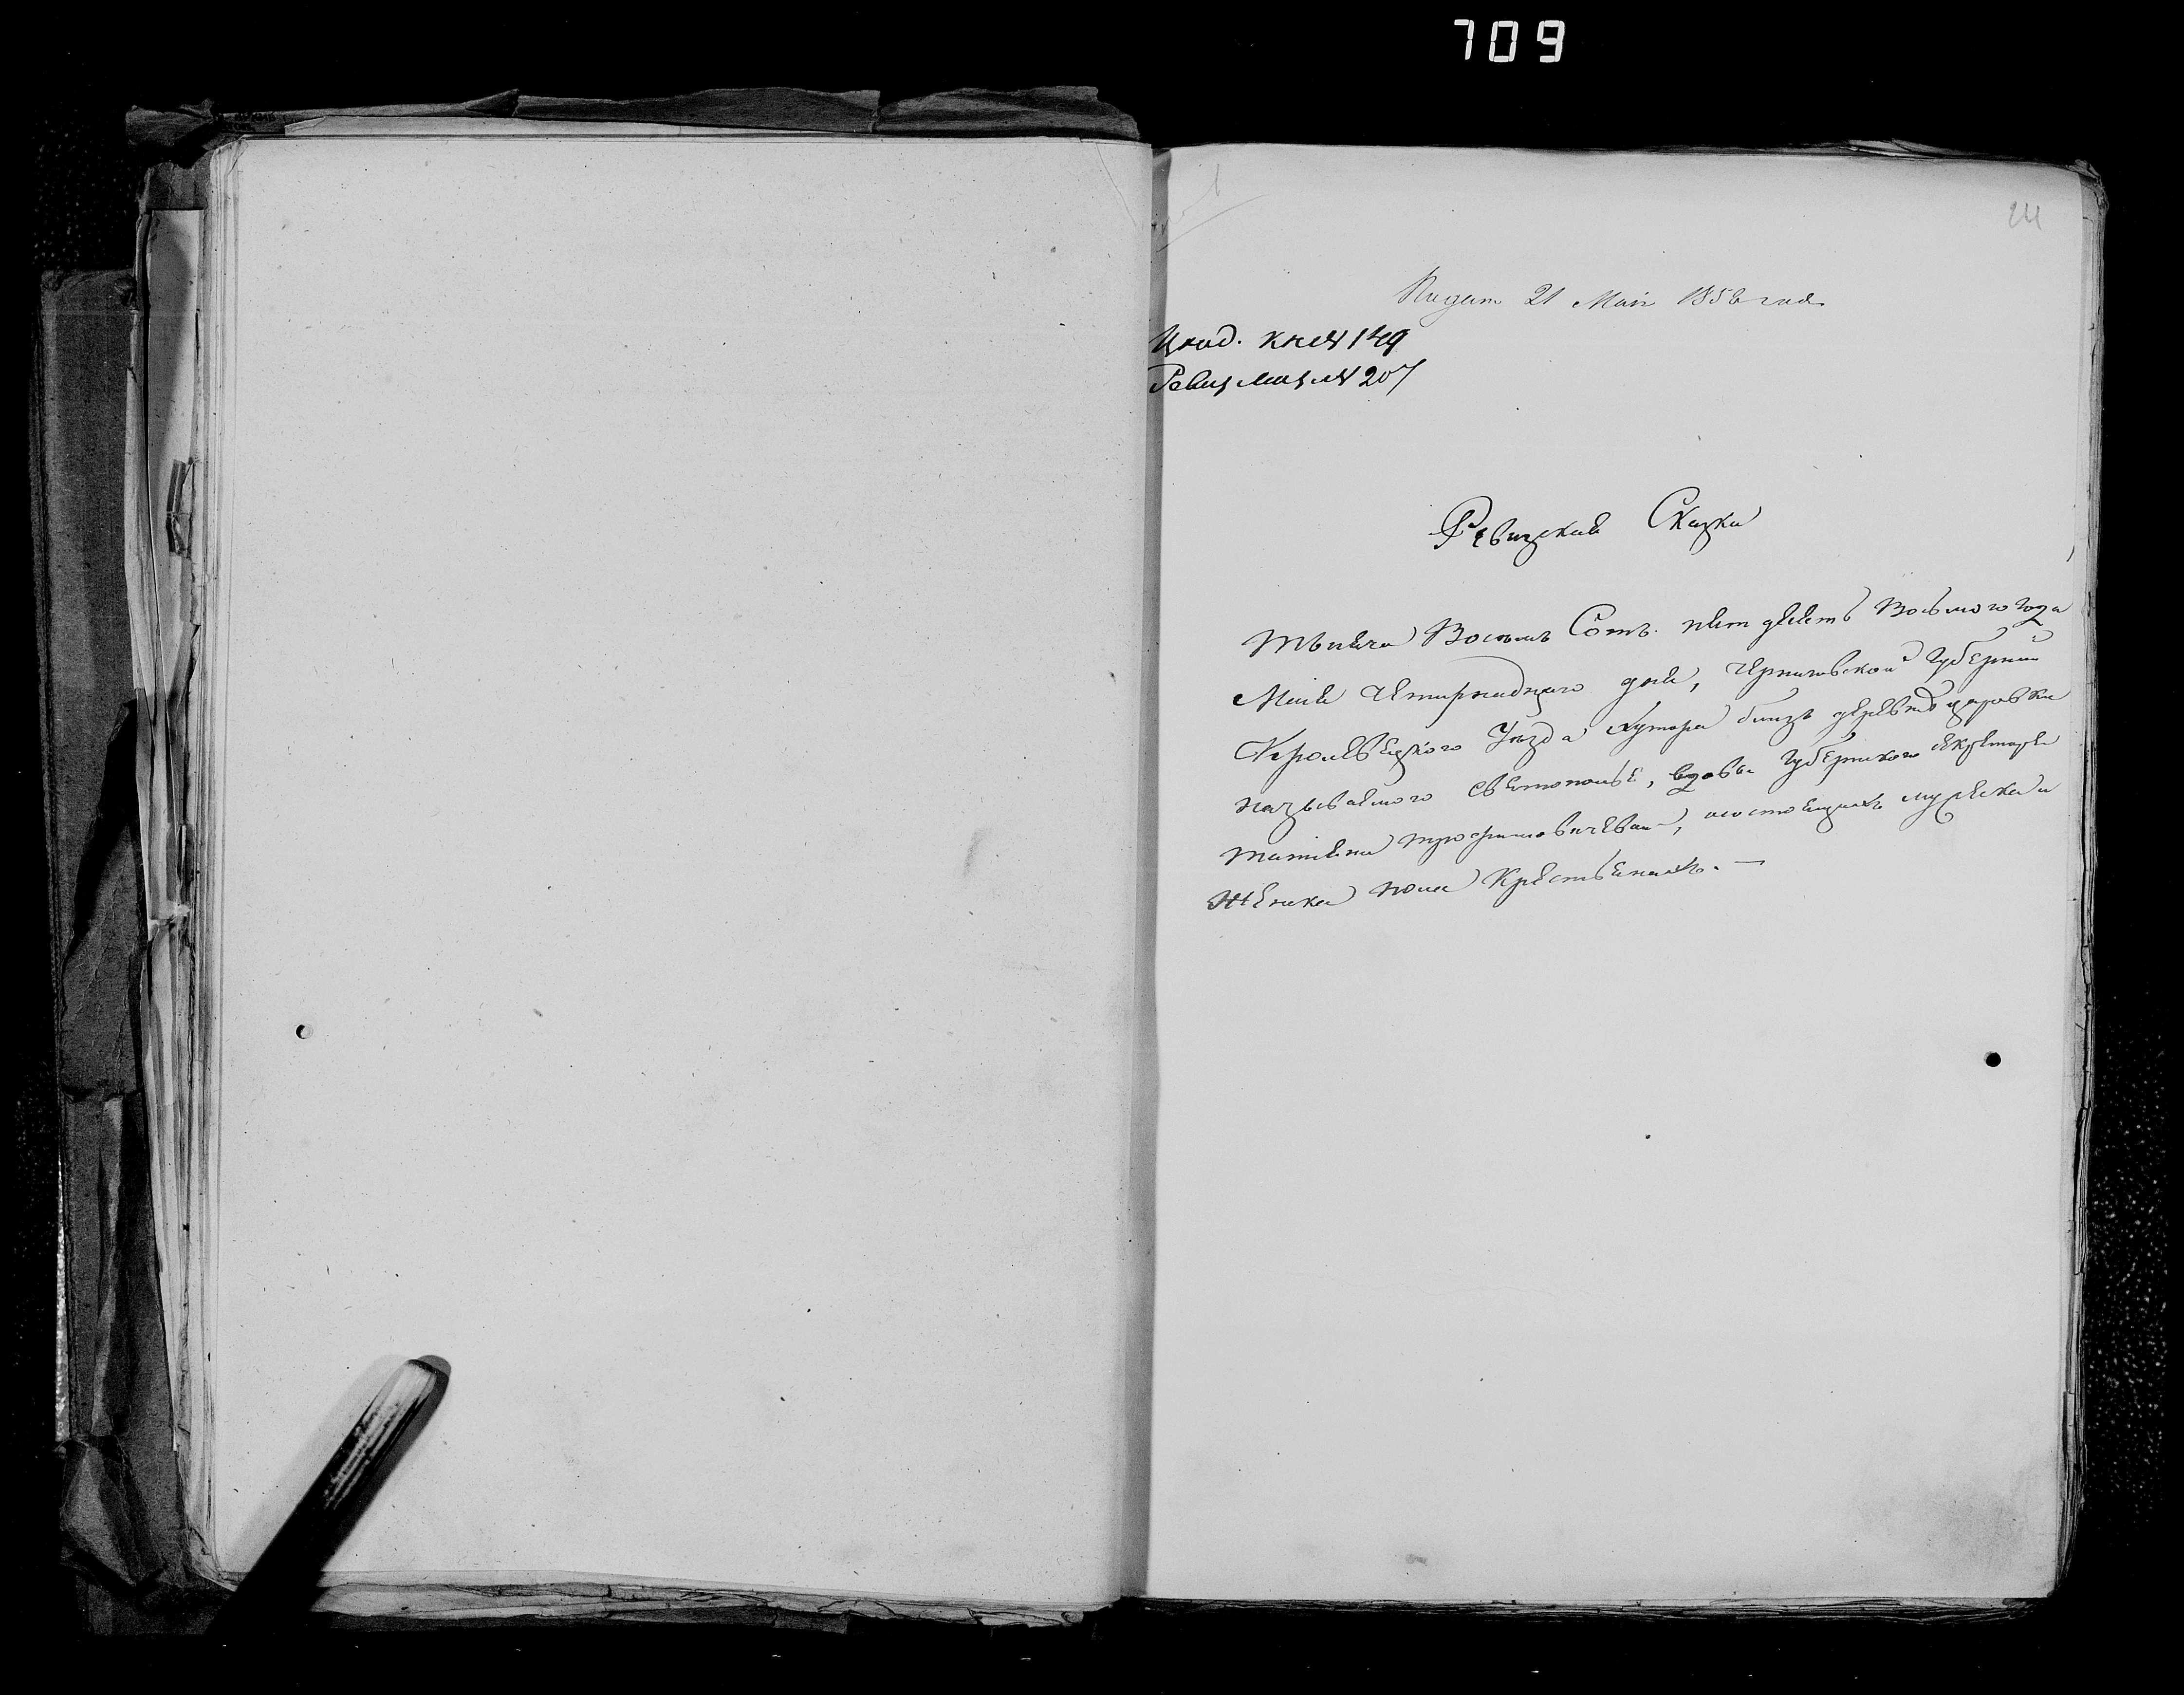 709
Подан 21 Мая 1858 года
вход. кн № 149
Ревиз маг № 207
Ревизская Сказка
Тысяча Восемь Сотъ пятдесятъ Восьмого Года
Мая Четырнадцаго дня, Черниговской Губернии
Кролевецкого Уезда хутора близъ деревнѣ
называемого Святополье, вдовы Губернского секретаря
татяны трофимовичевай, осостоящихъ мужеска и
женска пола Крестьянахъ. —